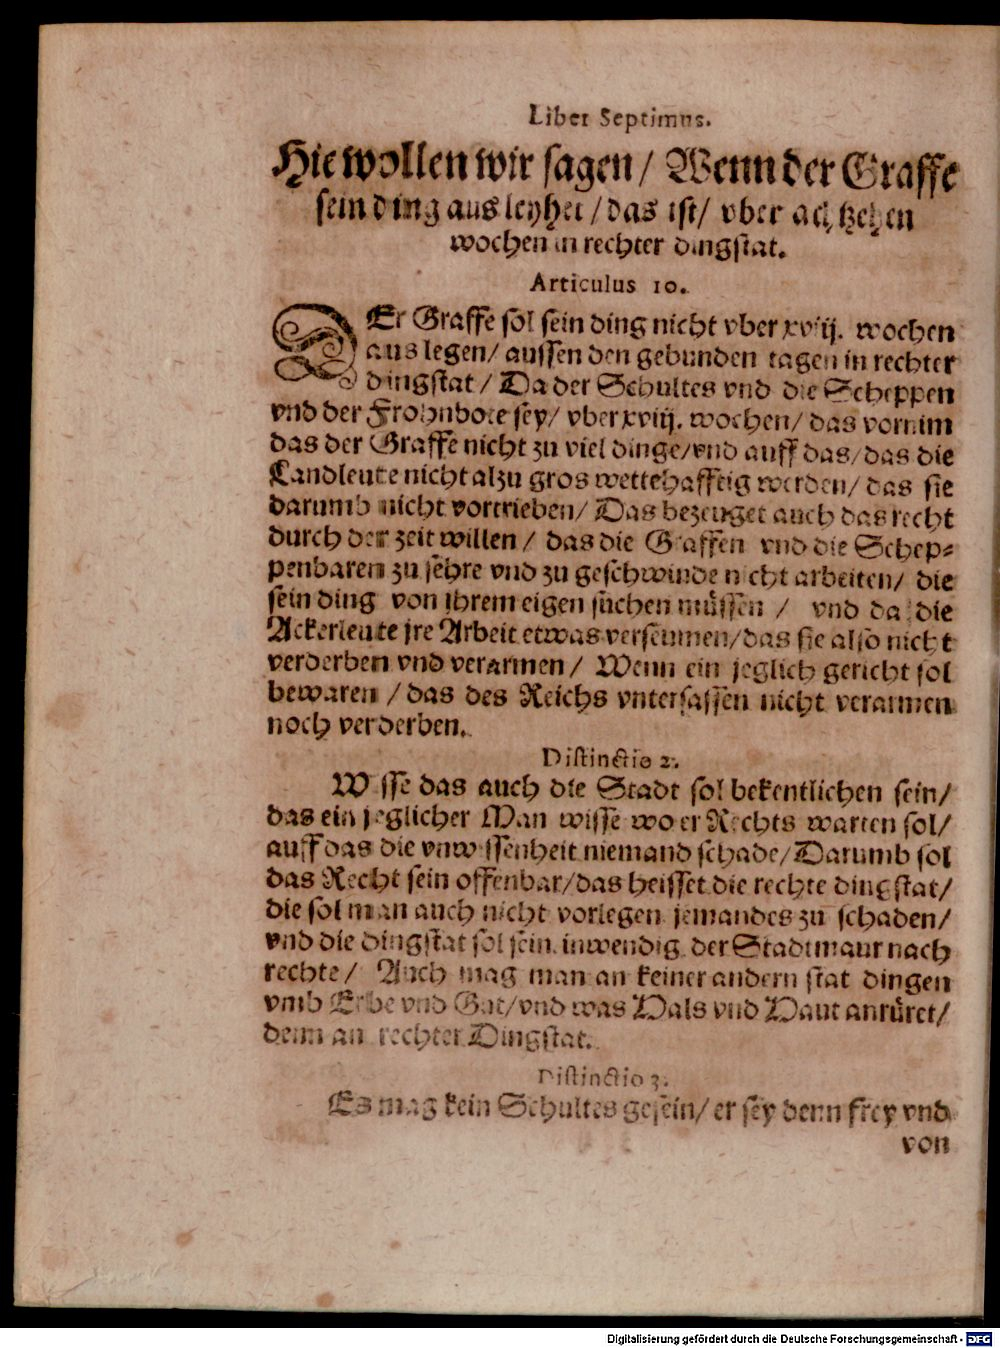 Liber Septimus.
Hie wollen wir sagen/ Wenn der Graffe
sein ding aus leyhet/das ist/ vber achtzehen
wochen in rechter dingstat.
Articulus 10.
DEr Graffe sol sein ding nicht vber xviij. wochen
aus legen/ aussen den gebunden tagen in rechter
dingstat/ Da der Schultes vnd die Scheppen
vnd der Frohnbote sey/ vber xviij. wochen/ das vornim
das der Graffe nicht zu viel dinge/vnd auff das/das die
Landleute nicht alzu gros wettehafftig werden/ das sie
darumb nicht vortrieben/ Das bezeuget auch das recht
durch der zeit willen/ das die Graffen vnd die Schep-
penbaren zu sehre vnd zu geschwinde nicht arbeiten/ die
sein ding von ihrem eigen suchen müssen/ vnd da die
Ackerleute jre Arbeit etwas verseumen/das sie also nicht
verderben vnd verarmen/ Wenn ein jeglich gericht sol
bewaren/das des Reichs vntersassen nicht verarmen
noch verderben.
Distinctio 2.
Wisse das auch die Stadt sol bekentlichen sein/
das ein jeglicher Man wisse wo er Rechts warten sol/
auff das die vnwissenheit niemand schade/Darumb sol
das Recht sein offenbar/das heisset die rechte dingstat/
die sol man auch nicht vorlegen jemandes zu schaden/
vnd die dingstat sol sein inwendig der Stadtmaur nach
rechte/ Auch mag man an keiner andern stat dingen
vmb Erbe vnd Gut/vnd was Hals vnd Haut anrüret/
denn an rechter Dingstat.
Distinctio 3.
Es mag kein Schultes gesein/ er sey denn frey vnd
von
Digitalisierung gefördert durch die Deutsche Forschungsgemeinschaft - DFG